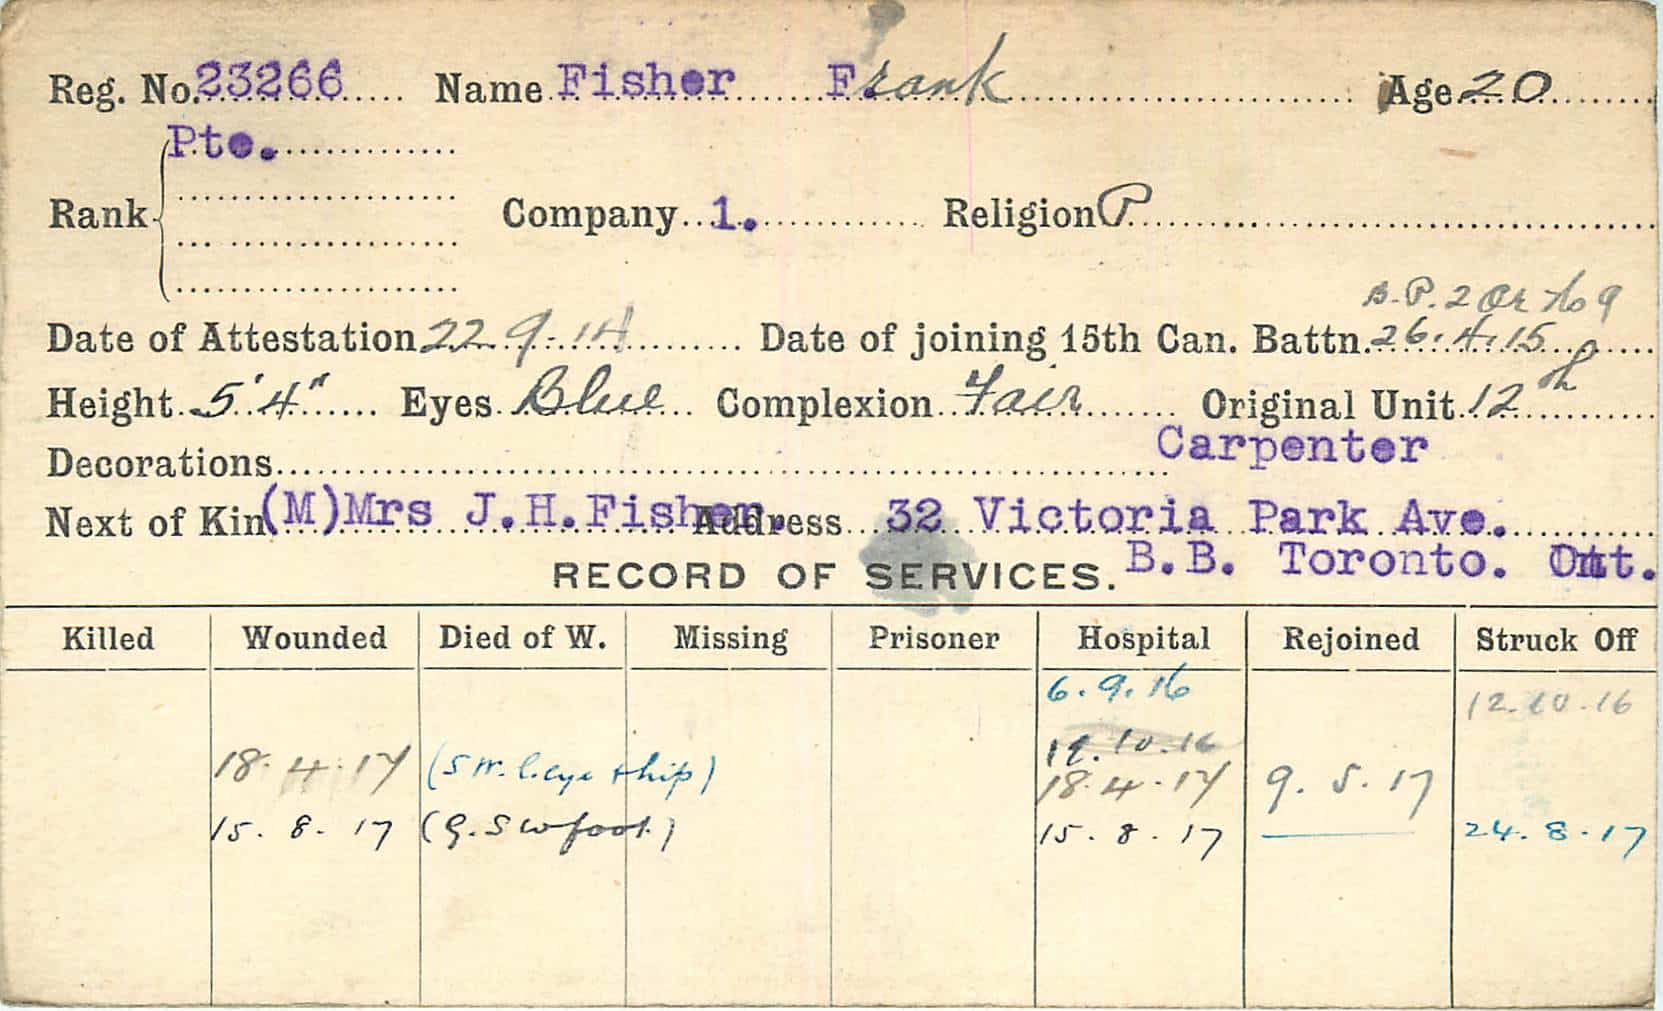 Reg. No. 23266 Name Fisher Frank Age 20
Pte.
Rank Company 1. Religion P
B.P. 2 Or No 9
Date of Attestation 22.9.14 Date of joining 15th Can. Battn. 26.4.15
Height 5'4" Eyes Blue Complexion Fair Original Unit 12th
Decorations Carpenter
Next of Kin (M) Mrs J.H. Fisher. Address 32 Victoria Park Ave.
RECORD OF SERVICES. B.B. Toronto. Ont.
Killed Wounded Died of W. Missing Prisoner Hospital Rejoined Struck Off
6.9.16
12.10.16
10.16
18.4.17 (S.W. l. eye & hip) 18.4.17 9.5.17
15.8.17 (G.S W foot) 15.8.17 24.8.17